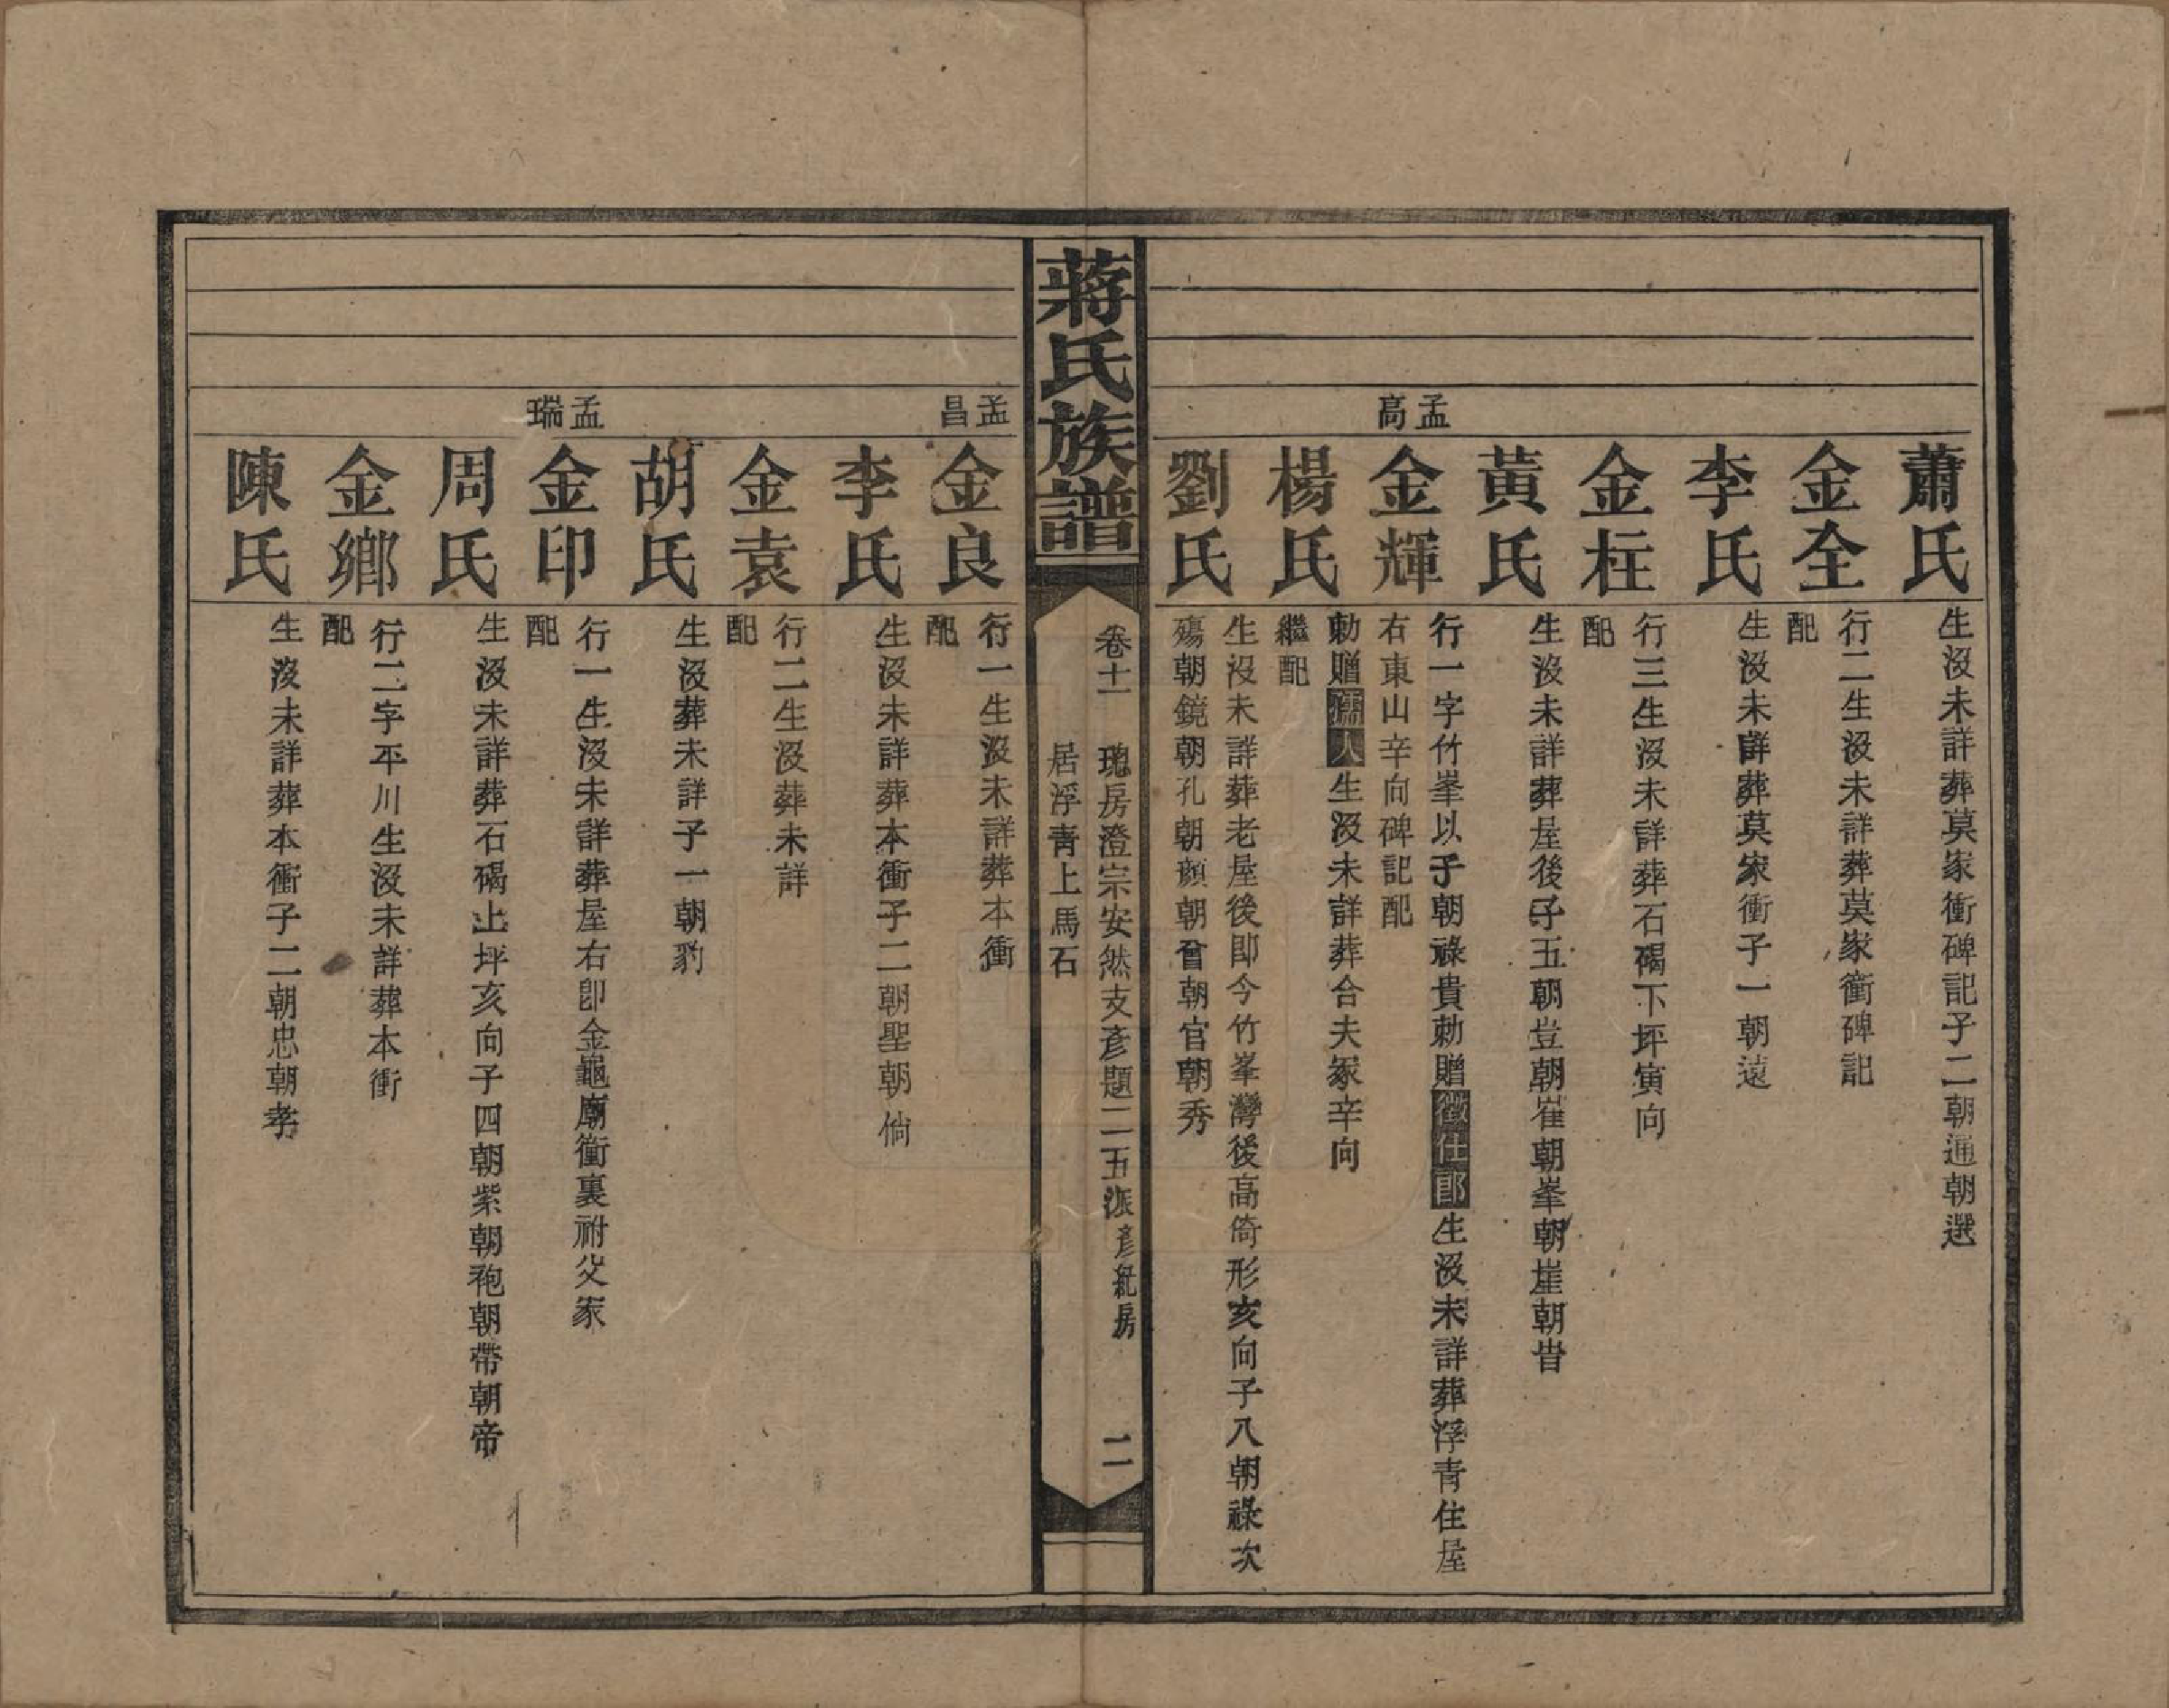 蕭氏
生沒未詳葬莫家衝碑記子二朝通朝選
金全
行二生沒未詳葬莫家衝碑記
配
李氏
生沒未詳葬莫家衝子一朝遠
金柱
行三生沒未詳葬石碣下坪寅向
配
黃氏
生沒未詳葬屋後子五朝豈朝崔朝峯朝崖朝旹
孟高
金輝
行一字竹峯以子朝祿貴勅贈徵仕郎生沒未詳葬浮青住屋
右東山辛向碑記配
楊氏
勅贈孺人生沒未詳葬合夫冢辛向
繼配
劉氏
生沒未詳葬老屋後即今竹峯灣後高倚形亥向子八朝祿次
殤朝鏡朝孔朝顏朝曾朝官朝秀
蔣氏族譜
卷十一
瑰房澄宗安然支彥題二五派彥紕房
居浮青上馬石
二
孟昌
金良
行一生沒未詳葬本衝
配
李氏
生沒未詳葬本衝子二朝聖朝倘
金袁
行二生沒葬未詳
配
胡氏
生沒葬未詳子一朝豹
孟瑞
金印
行一生沒未詳葬屋右卽金龜廟衝裏祔父冢
配
周氏
生沒未詳葬石碣上坪亥向子四朝紫朝袍朝帶朝帝
金鄉
行二字平川生沒未詳葬本衝
配
陳氏
生沒未詳葬本衝子二朝忠朝孝